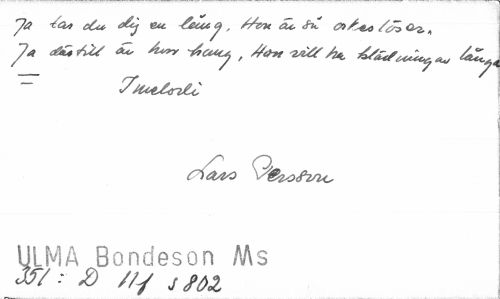 Ja tar du dig en lång, Hon är så orkeslöser,
Ja därtill är hon trång, Hon vill ha klädningar långa
I melodi
Lars Persson
ULMA Bondeson Ms
351: D 11f s 802